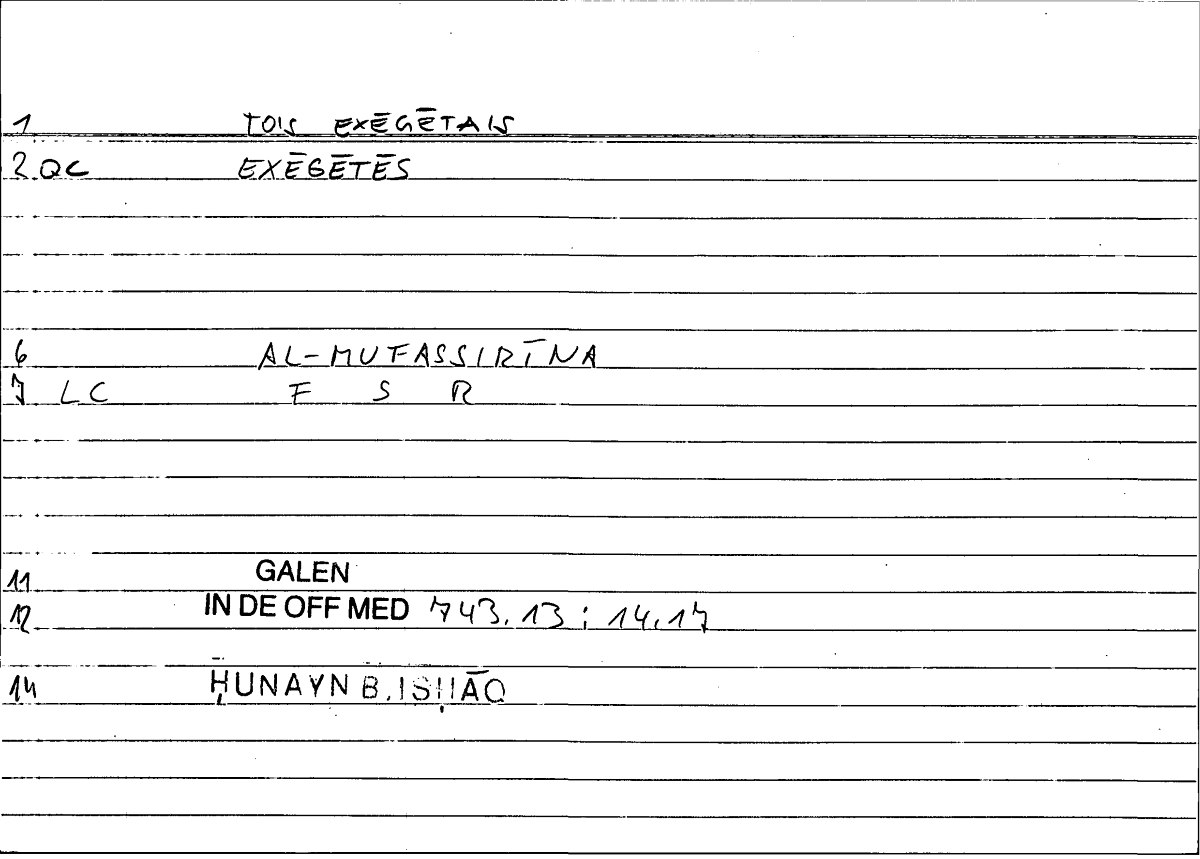 1 TOIS EXĒGĒTAIS
2 QC EXĒGĒTĒS
6 AL-MUFASSIRĪNA
7 LC F S R
11 GALEN
12 IN DE OFF MED 743.13 ; 14.17
14 ḤUNAYN B. ISḤĀQ